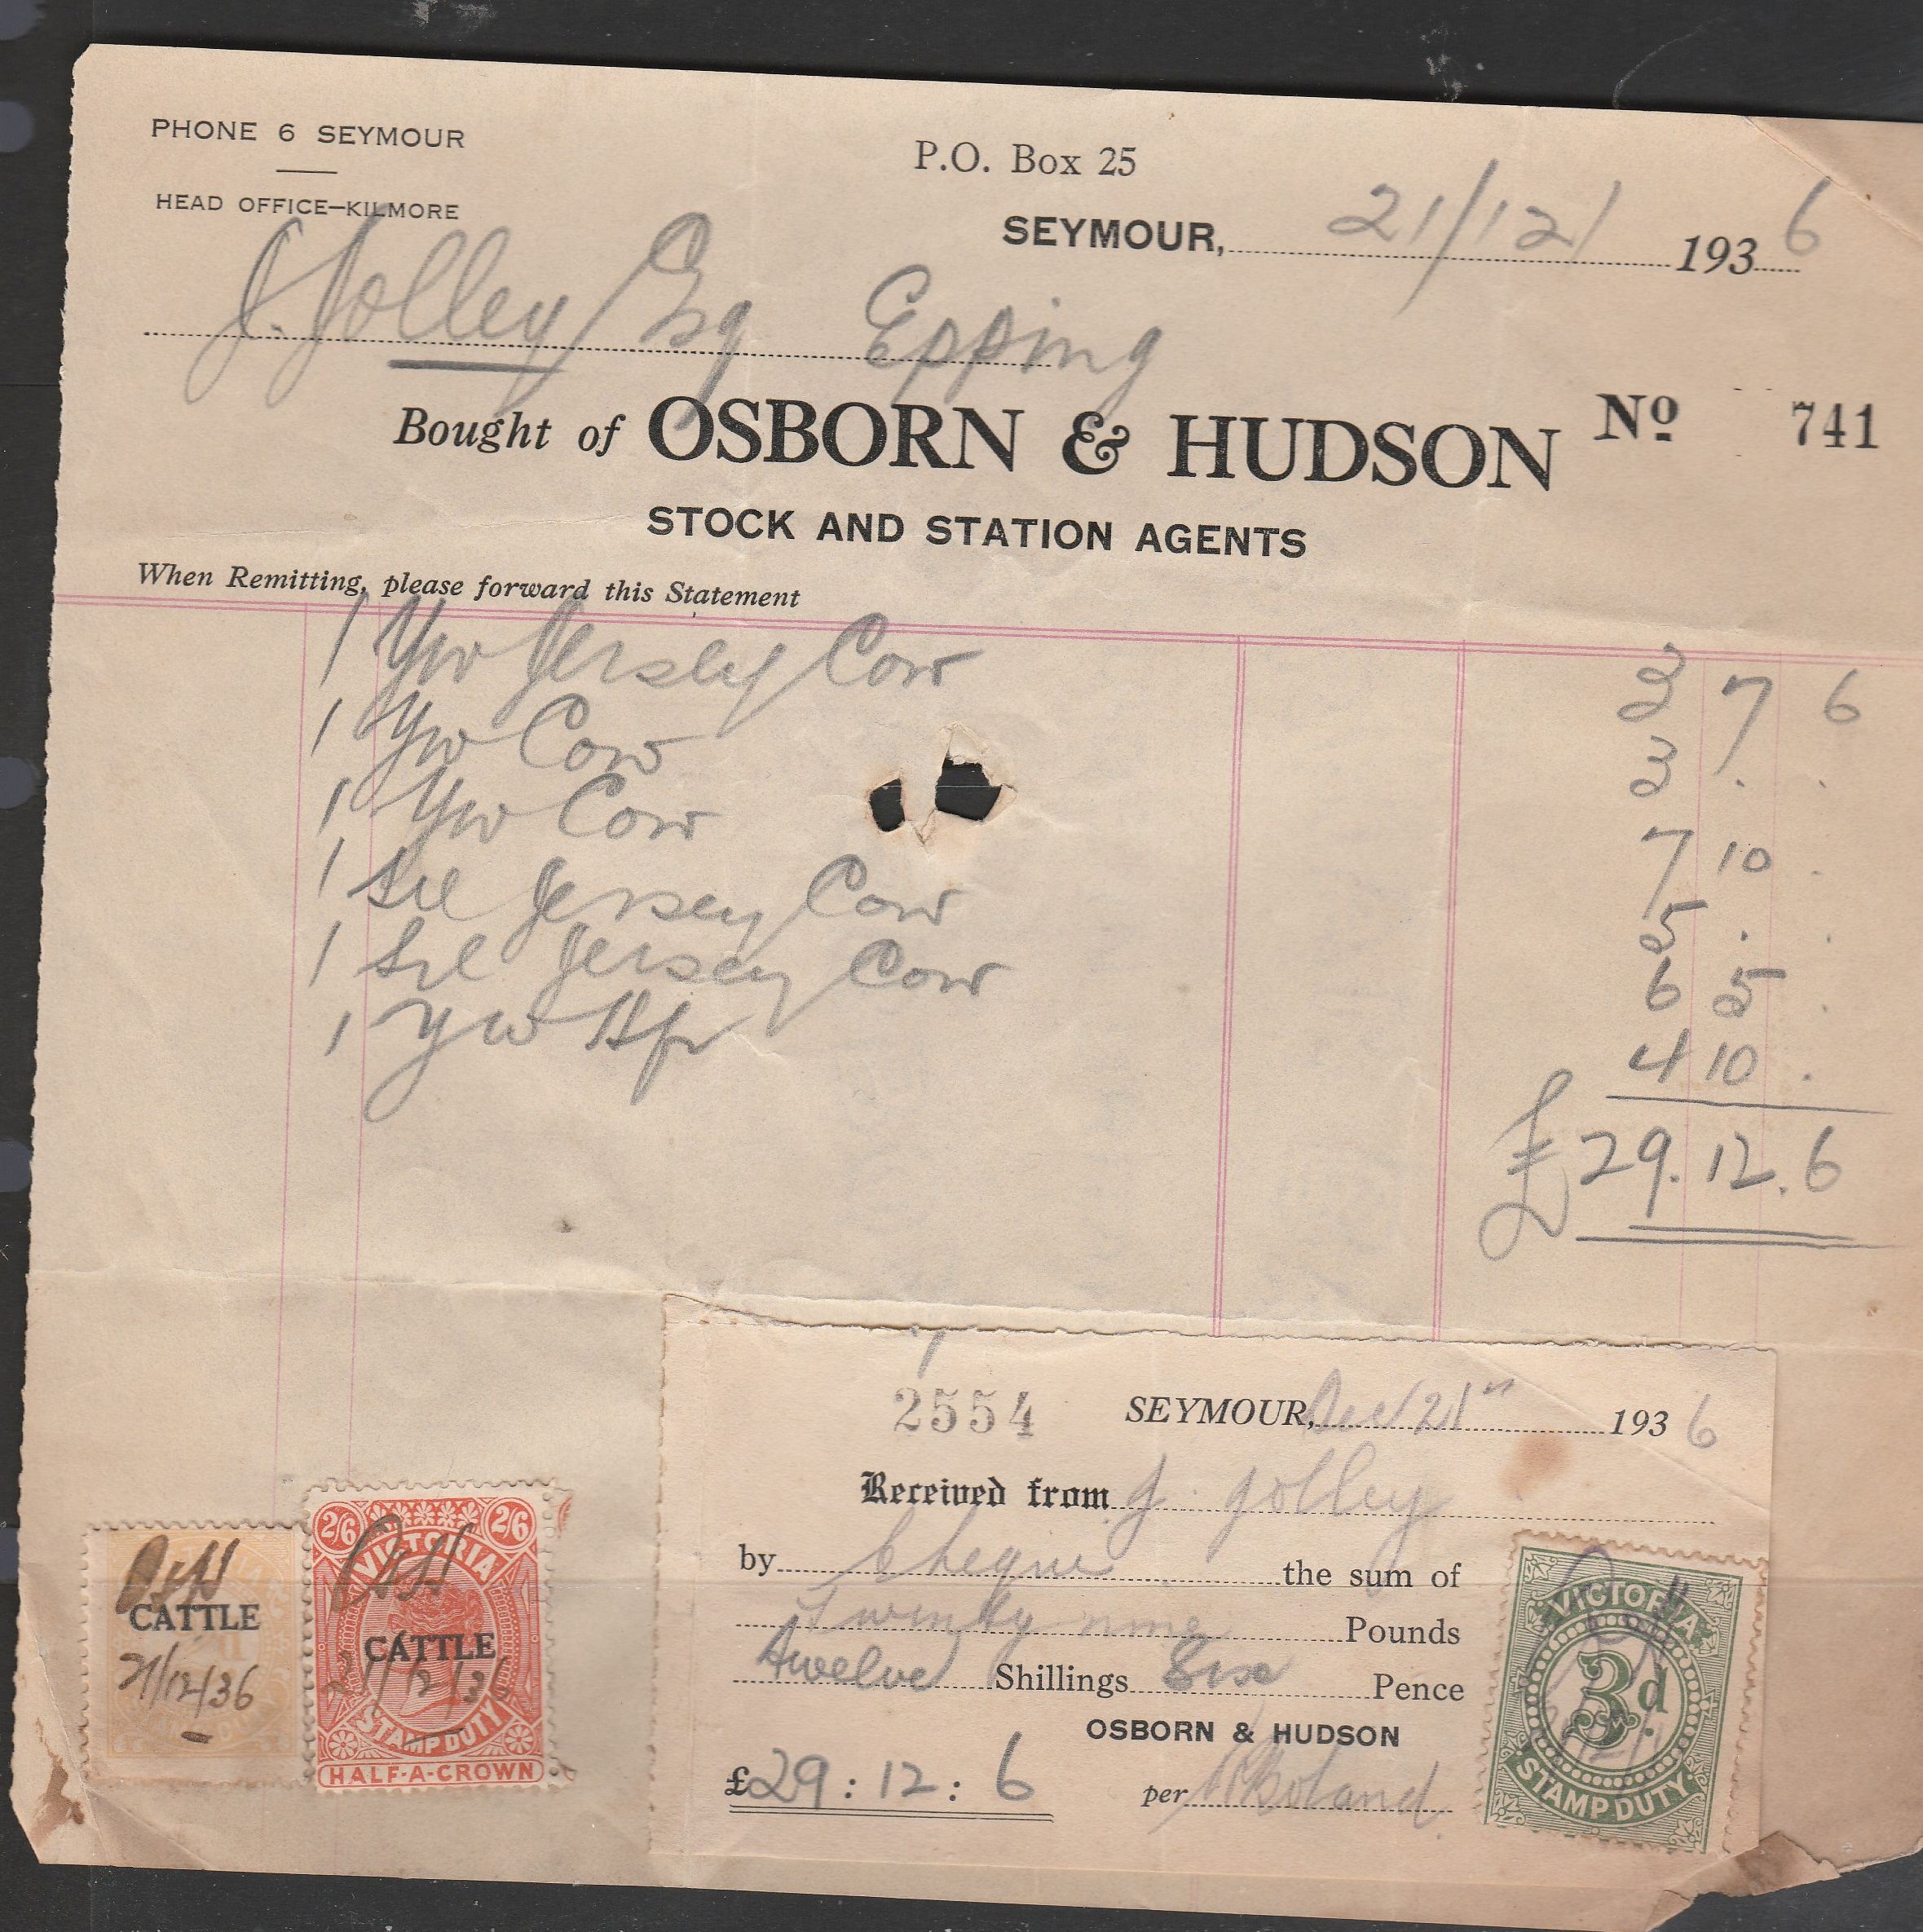 PHONE 6 SEYMOUR
P.O. Box 25
HEAD OFFICE—KILMORE
SEYMOUR, 21/12/ 1936
J. Jolley Esq Epping
Bought of OSBORN & HUDSON No 741
STOCK AND STATION AGENTS
When Remitting, please forward this Statement
1 Yw Jersey Cow 3 7 6
1 Yw Cow 3 . .
1 Yw Cow 7 10 .
1 Sil Jersey Cow 5 . .
1 Sil Jersey Cow 6 5 .
1 Yw Hfr 4 10 .
£29.12.6
2554 SEYMOUR, Dec 21st 1936
Received from J. Jolley
by Cheque the sum of
Twenty nine Pounds
Twelve Shillings Six Pence
OSBORN & HUDSON
£29:12:6 per
O&H
CATTLE
21/12/36
2/6 2/6
VICTORIA
O&H
CATTLE
21/12/36
STAMP DUTY
HALF-A-CROWN
VICTORIA
3d.
STAMP DUTY